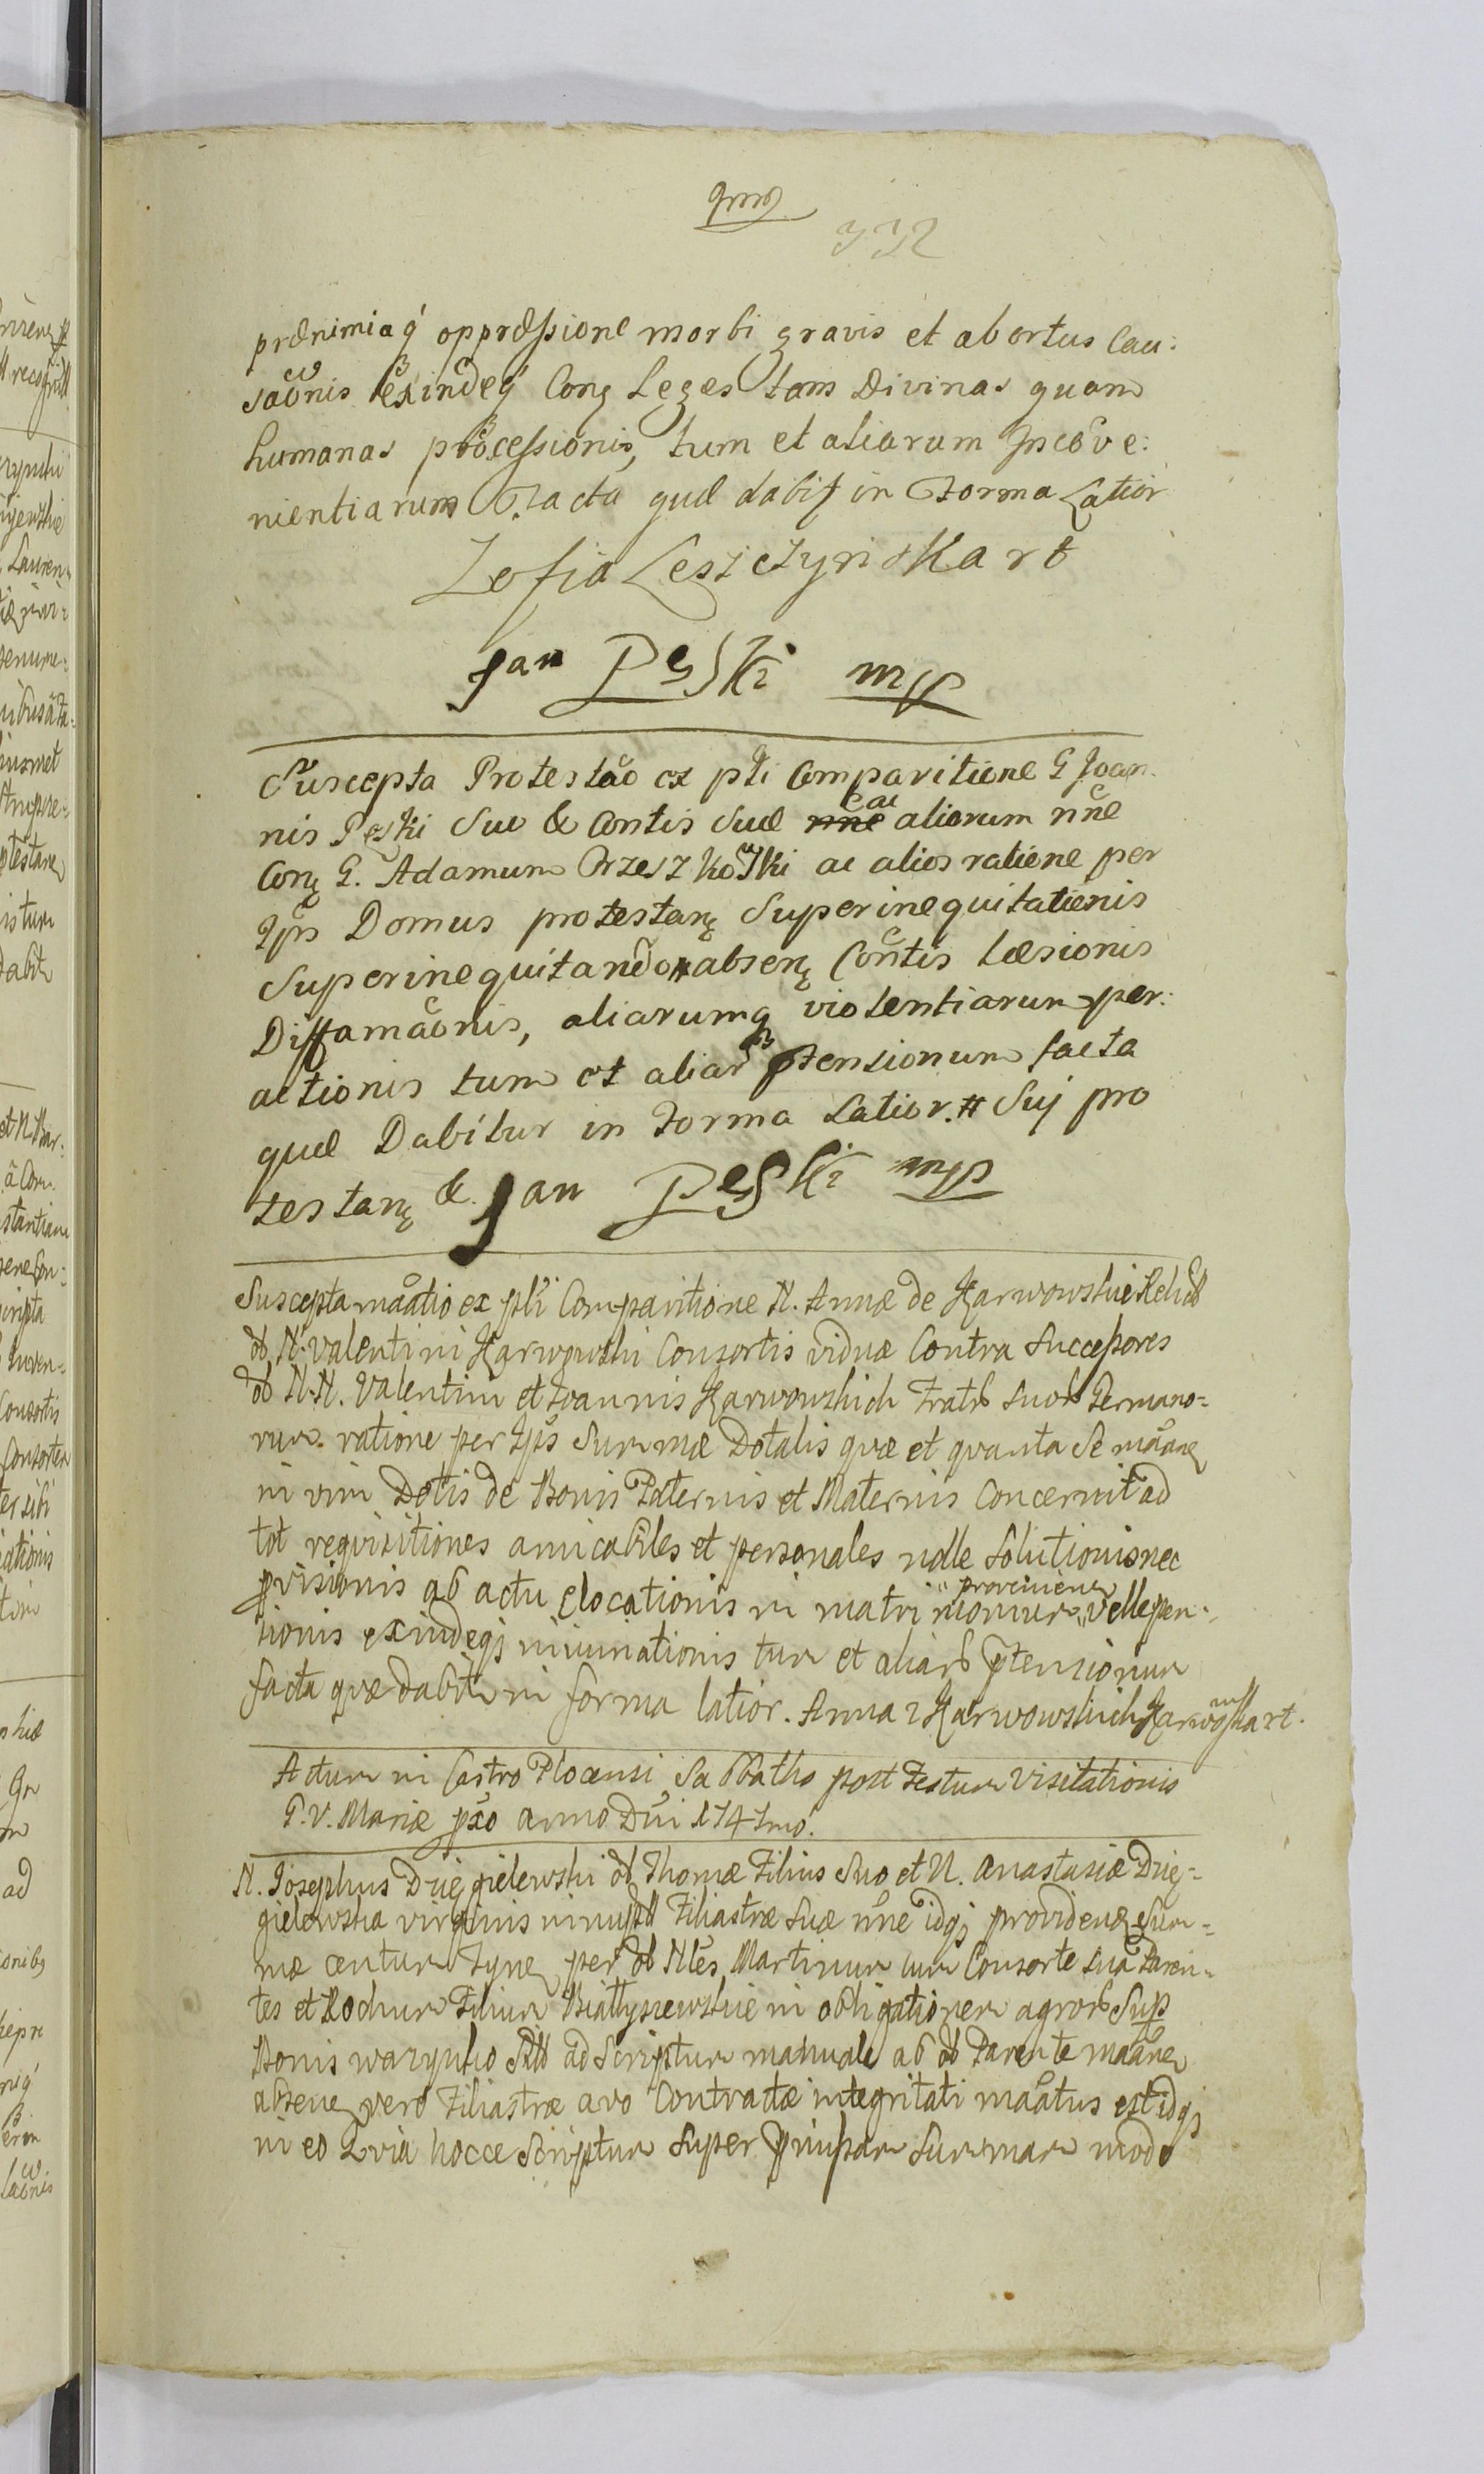 332
prænimiaq́ oppræssione morbi gravis et abortus Cau:
saōnis exindeq́ Conң Leges tam Divinas quam
humanas processionis, tum et aliarum Incōve:
nientiarum Facta quæ dabiʈ in Forma Latior
Zofia Leszczynskar ŧ
Jan Peski mp
Suscepta Protestāo ex pñti Comparitione G Joan:
nis Peski Suo & Contis Suæ ac aliorum nñe
Conң G. Adamum Orzeszkowski ac alios ratione per
Ipš Domus protestanң Superinequitationis
Superinequitando # absenң Contis Læsionis
Diffamaōnis, aliarumq violentiarum per:
actionis tum et aliar ptensionum facta
quæ Dabitur in Forma Latior. # Suj pro
testanң &. Jan Peski mp
Suscepta māātio ex pñti Comparitione N. Annæ de Karwowskie Relictæ
ol. N. Valentini Karwowski Consortis viduæ Contra Successores
ol. N.N. Valentini et Joannis Karwowskich Fratrũ Suorũ Germano=
rum ratione per Ipš Summæ Dotalis quæ et quanta Se māānң
in vim Dotis de Bonis Paternis et Maternis Concernit ad
tot requisitiones amicabiles et personales nolle Solutionis nec
pvisionis ab actu Elocationis in matrimonium "provenienң" velle pen=
sionis exindeqз iniuriationis tum et aliarũ ptensionum
facta quæ dabitur in forma latior. Anna z Karwowskich Karwowska rt.
Actum in Castro Plocensi Sabbatho post Festum Visitationis
B.V. Mariæ pxo Anno Dni 1747mo.
N. Josephus Dzięgielewski ol. Thomæ Filius Suo et N. Anastasiæ Dzię=
gielewska virginis innuptæ Filiastræ Suæ nñe idqз providenң Sum=
mæ centum Tynң per ol. Nles Martinum cum Consorte Sua Paren=
tes et Rochum Filium Białłyszewskie in obligationem agrorũ Sup
Bonis warynho ad Scriptum manuale ab ol. Parente māānң
absenң vero Filiastræ avo Contractæ integritati māātus est idqз
in eo Quia hocce Scriptum Super pmissam Summam modo